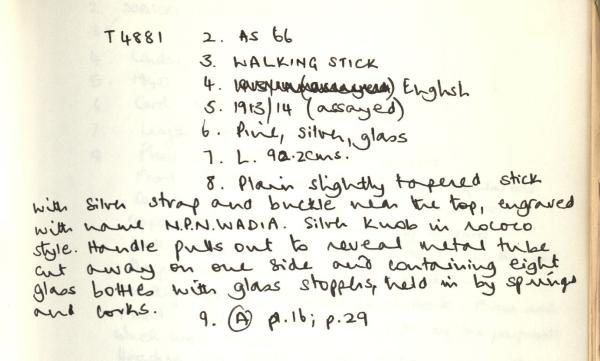 T4881 2. AS 66
3. WALKING STICK
4. English
5. 1913/14 (assayed)
6. Pine, silver, glass
7. L. 92.2cms.
8. Plain slightly tapered stick
with silver strap and buckle near the top, engraved
with name N.P.N.WADIA. Silver knob in rococo
style. Handle pulls out to reveal metal tube
cut away on one side and containing eight
glass bottles with glass stoppers, held in by springs
and corks.
9. (A) pl.16; p.29